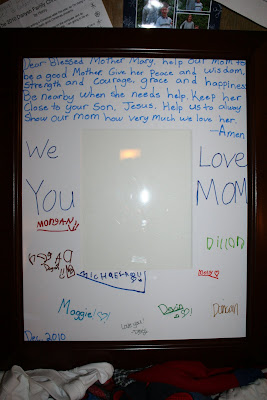 Dear Blessed Mother Mary, help our Mom to
be a good Mother. Give her peace and wisdom,
Strength and courage, grace and happiness
Be nearby when she needs help. Keep her
close to your Son, Jesus. Help us to always
show our mom how very much we love her.
-Amen
We Love
You MOM
MORGAN
DiLLON
MICHAEL
Mary
Maggie!
Devin
Duncan
Love you!
Dec. 2010